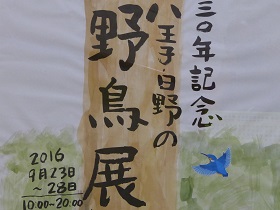 三〇年記念
八王子・日野の
野鳥展
2016
9月23日
～28日
10:00-20:00